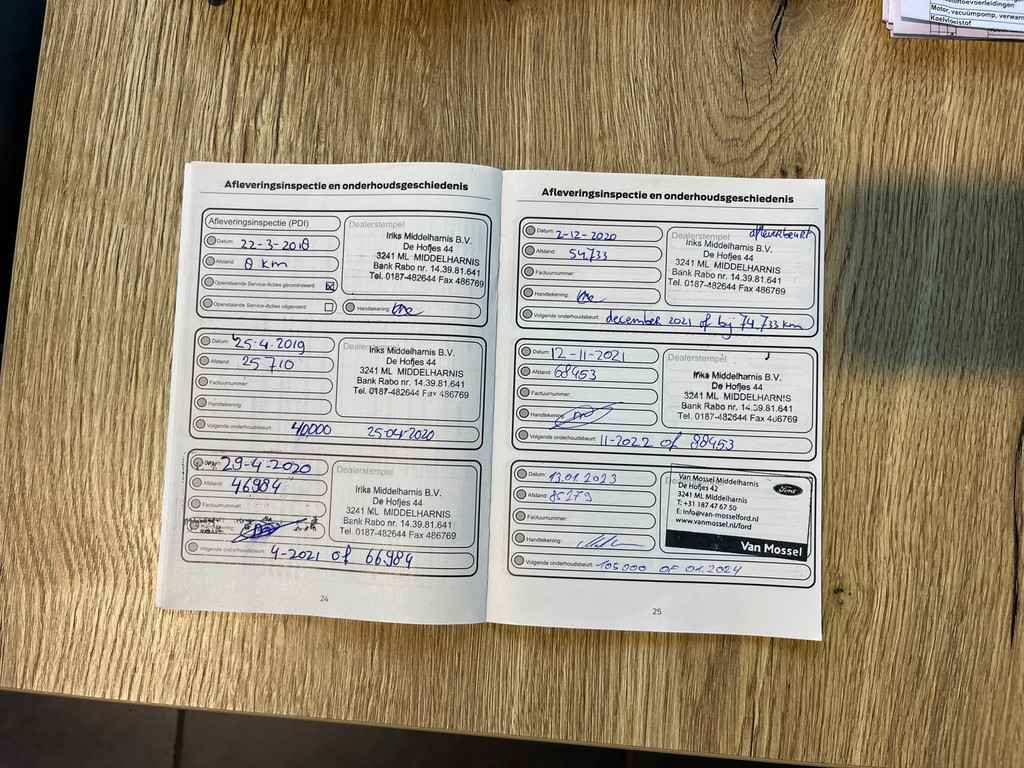 Motor, vacuümpomp, verwarm
Koelvloeistof
Afleveringsinspectie en onderhoudsgeschiedenis
Afleveringsinspectie (PDI)
Datum: 22-3-2018
Afstand: 0 km
Openstaande Service-Acties gecontroleerd:
Openstaande Service-Acties uitgevoerd:
Dealerstempel
Iriks Middelharnis B.V.
De Hofjes 44
3241 ML MIDDELHARNIS
Bank Rabo nr. 14.39.81.641
Tel. 0187-482644 Fax 486769
Handtekening:
Datum: 25-4-2019
Afstand: 25710
Factuurnummer:
Handtekening:
Dealerstempel
Iriks Middelharnis B.V.
De Hofjes 44
3241 ML MIDDELHARNIS
Bank Rabo nr. 14.39.81.641
Tel. 0187-482644 Fax 486769
Volgende onderhoudsbeurt: 40,000 25-04-2020
Datum: 29-4-2020
Afstand: 46984
Factuurnummer:
Dealerstempel
Iriks Middelharnis B.V.
De Hofjes 44
3241 ML MIDDELHARNIS
Bank Rabo nr. 14.39.81.641
Tel. 0187-482644 Fax 486769
Volgende onderhoudsbeurt: 4-2021 of 66.984
24
Afleveringsinspectie en onderhoudsgeschiedenis
Datum: 2-12-2020
Afstand: 54.733
Factuurnummer:
Handtekening:
Dealerstempel afleverbeurt
Iriks Middelharnis B.V.
De Hofjes 44
3241 ML MIDDELHARNIS
Bank Rabo nr. 14.39.81.641
Tel. 0187-482644 Fax 486769
Volgende onderhoudsbeurt: december 2021 of bij 74.733 km
Datum: 12-11-2021
Afstand: 68453
Factuurnummer:
Handtekening:
Dealerstempel
Iriks Middelharnis B.V.
De Hofjes 44
3241 ML MIDDELHARNIS
Bank Rabo nr. 14.39.81.641
Tel. 0187-482644 Fax 486769
Volgende onderhoudsbeurt: 11-2022 of 88453
Datum: 13.01.2023
Afstand: 85279
Factuurnummer:
Handtekening:
Van Mossel Middelharnis
De Hofjes 42
3241 ML Middelharnis
T: +31 187 47 67 50
E: info@van-mosselford.nl
www.vanmossel.nl/ford
Ford
Van Mossel
Volgende onderhoudsbeurt: 105000 OF 01.2024
25